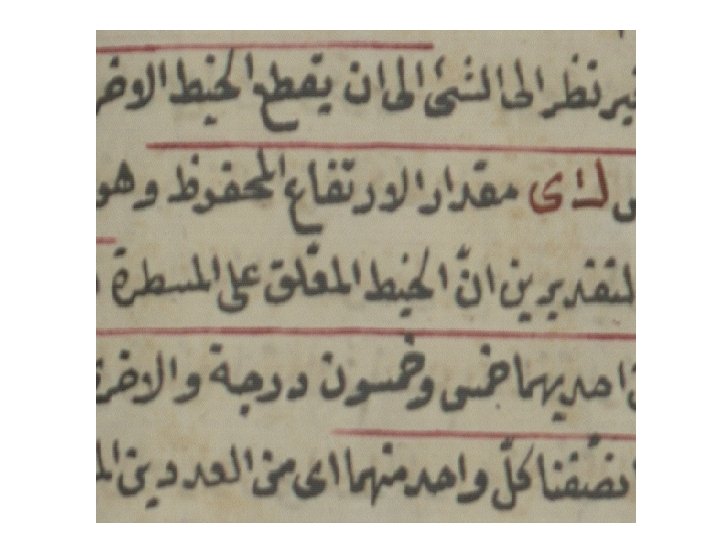 نظر الى الشئ الى ان يقطع الخيط الاخر
لاى مقدار الارتفاع المحفوظ وهو
التقديرين انّ الخيط المعّلق على المسطرة
احديهما خمس وخمسون درجة والاخرى
نصّفنا كلّ واحد منهما اى من العددين